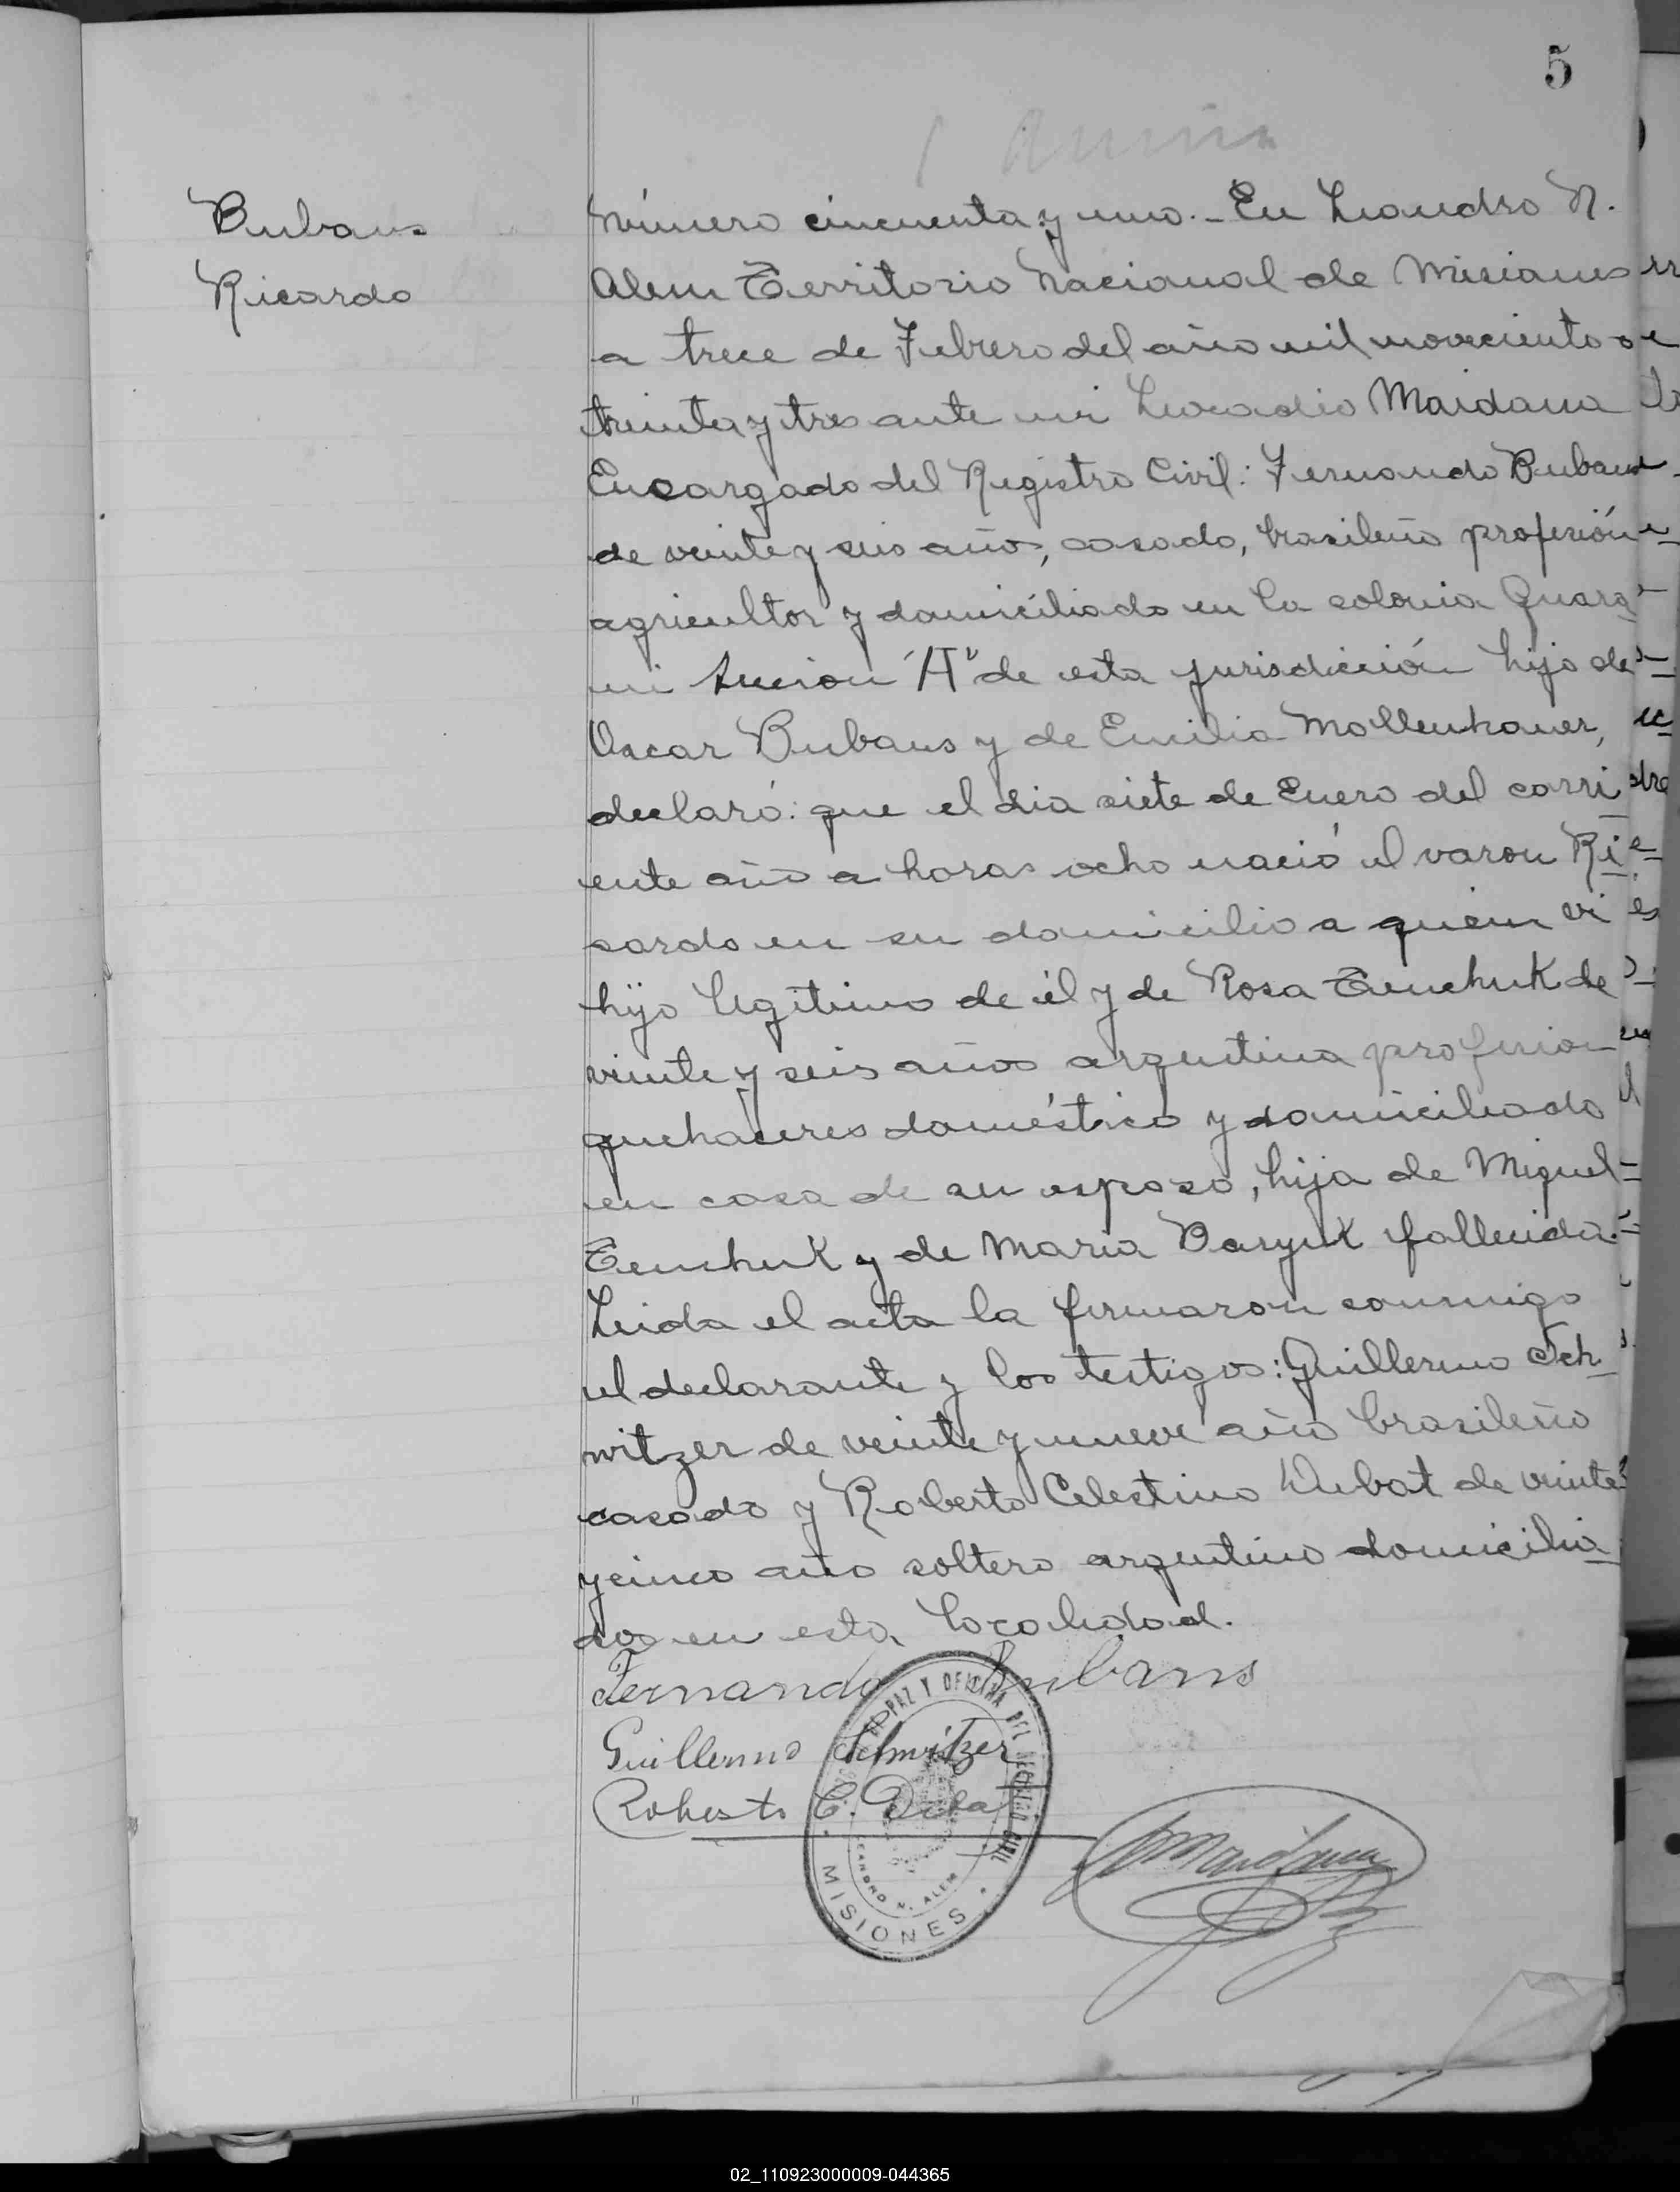 5
Bubans
Ricardo
Número cincuenta y uno.- En Leandro N.
Alem Territorio Nacional de Misiones
a trece de Febrero del año mil novecientos
treinta y tres ante mi Leocadio Maidana
Encargado del Registro Civil: Fernando Bubans
de veinte y seis años, casado, brasileño profesión
agricultor y domiciliado en la colonia Guara
ni Sección "A" de esta jurisdicción hijo de
Oscar Bubans y de Emilia Mollenhauer,
declaró: que el dia siete de Enero del corri
ente año a horas ocho nació el varon Ri
cardo en su domicilio a quien vi
hijo legitimo de él y de Rosa Tenchuk de
veinte y seis años argentina profesion
quehaceres doméstico y domiciliado
en casa de su esposo, hija de Miguel
Tenchuk y de Maria Baryuk fallecida.
Leida el acta la firmaron conmigo
el declarante y los testigos: Guillermo Sch
witzer de veinte y nueve año brasileño
casado y Roberto Celestino Dubat de veinte
y cinco año soltero argentino domicilia
dos en esta localidad.
Fernando Bubans
Guillermo Schwitzer
Roberto C. Duba
PAZ Y OFICINA DEL REGISTRO CIVIL
LEANDRO N. ALEM
MISIONES
Maidana
02_110923000009-044365